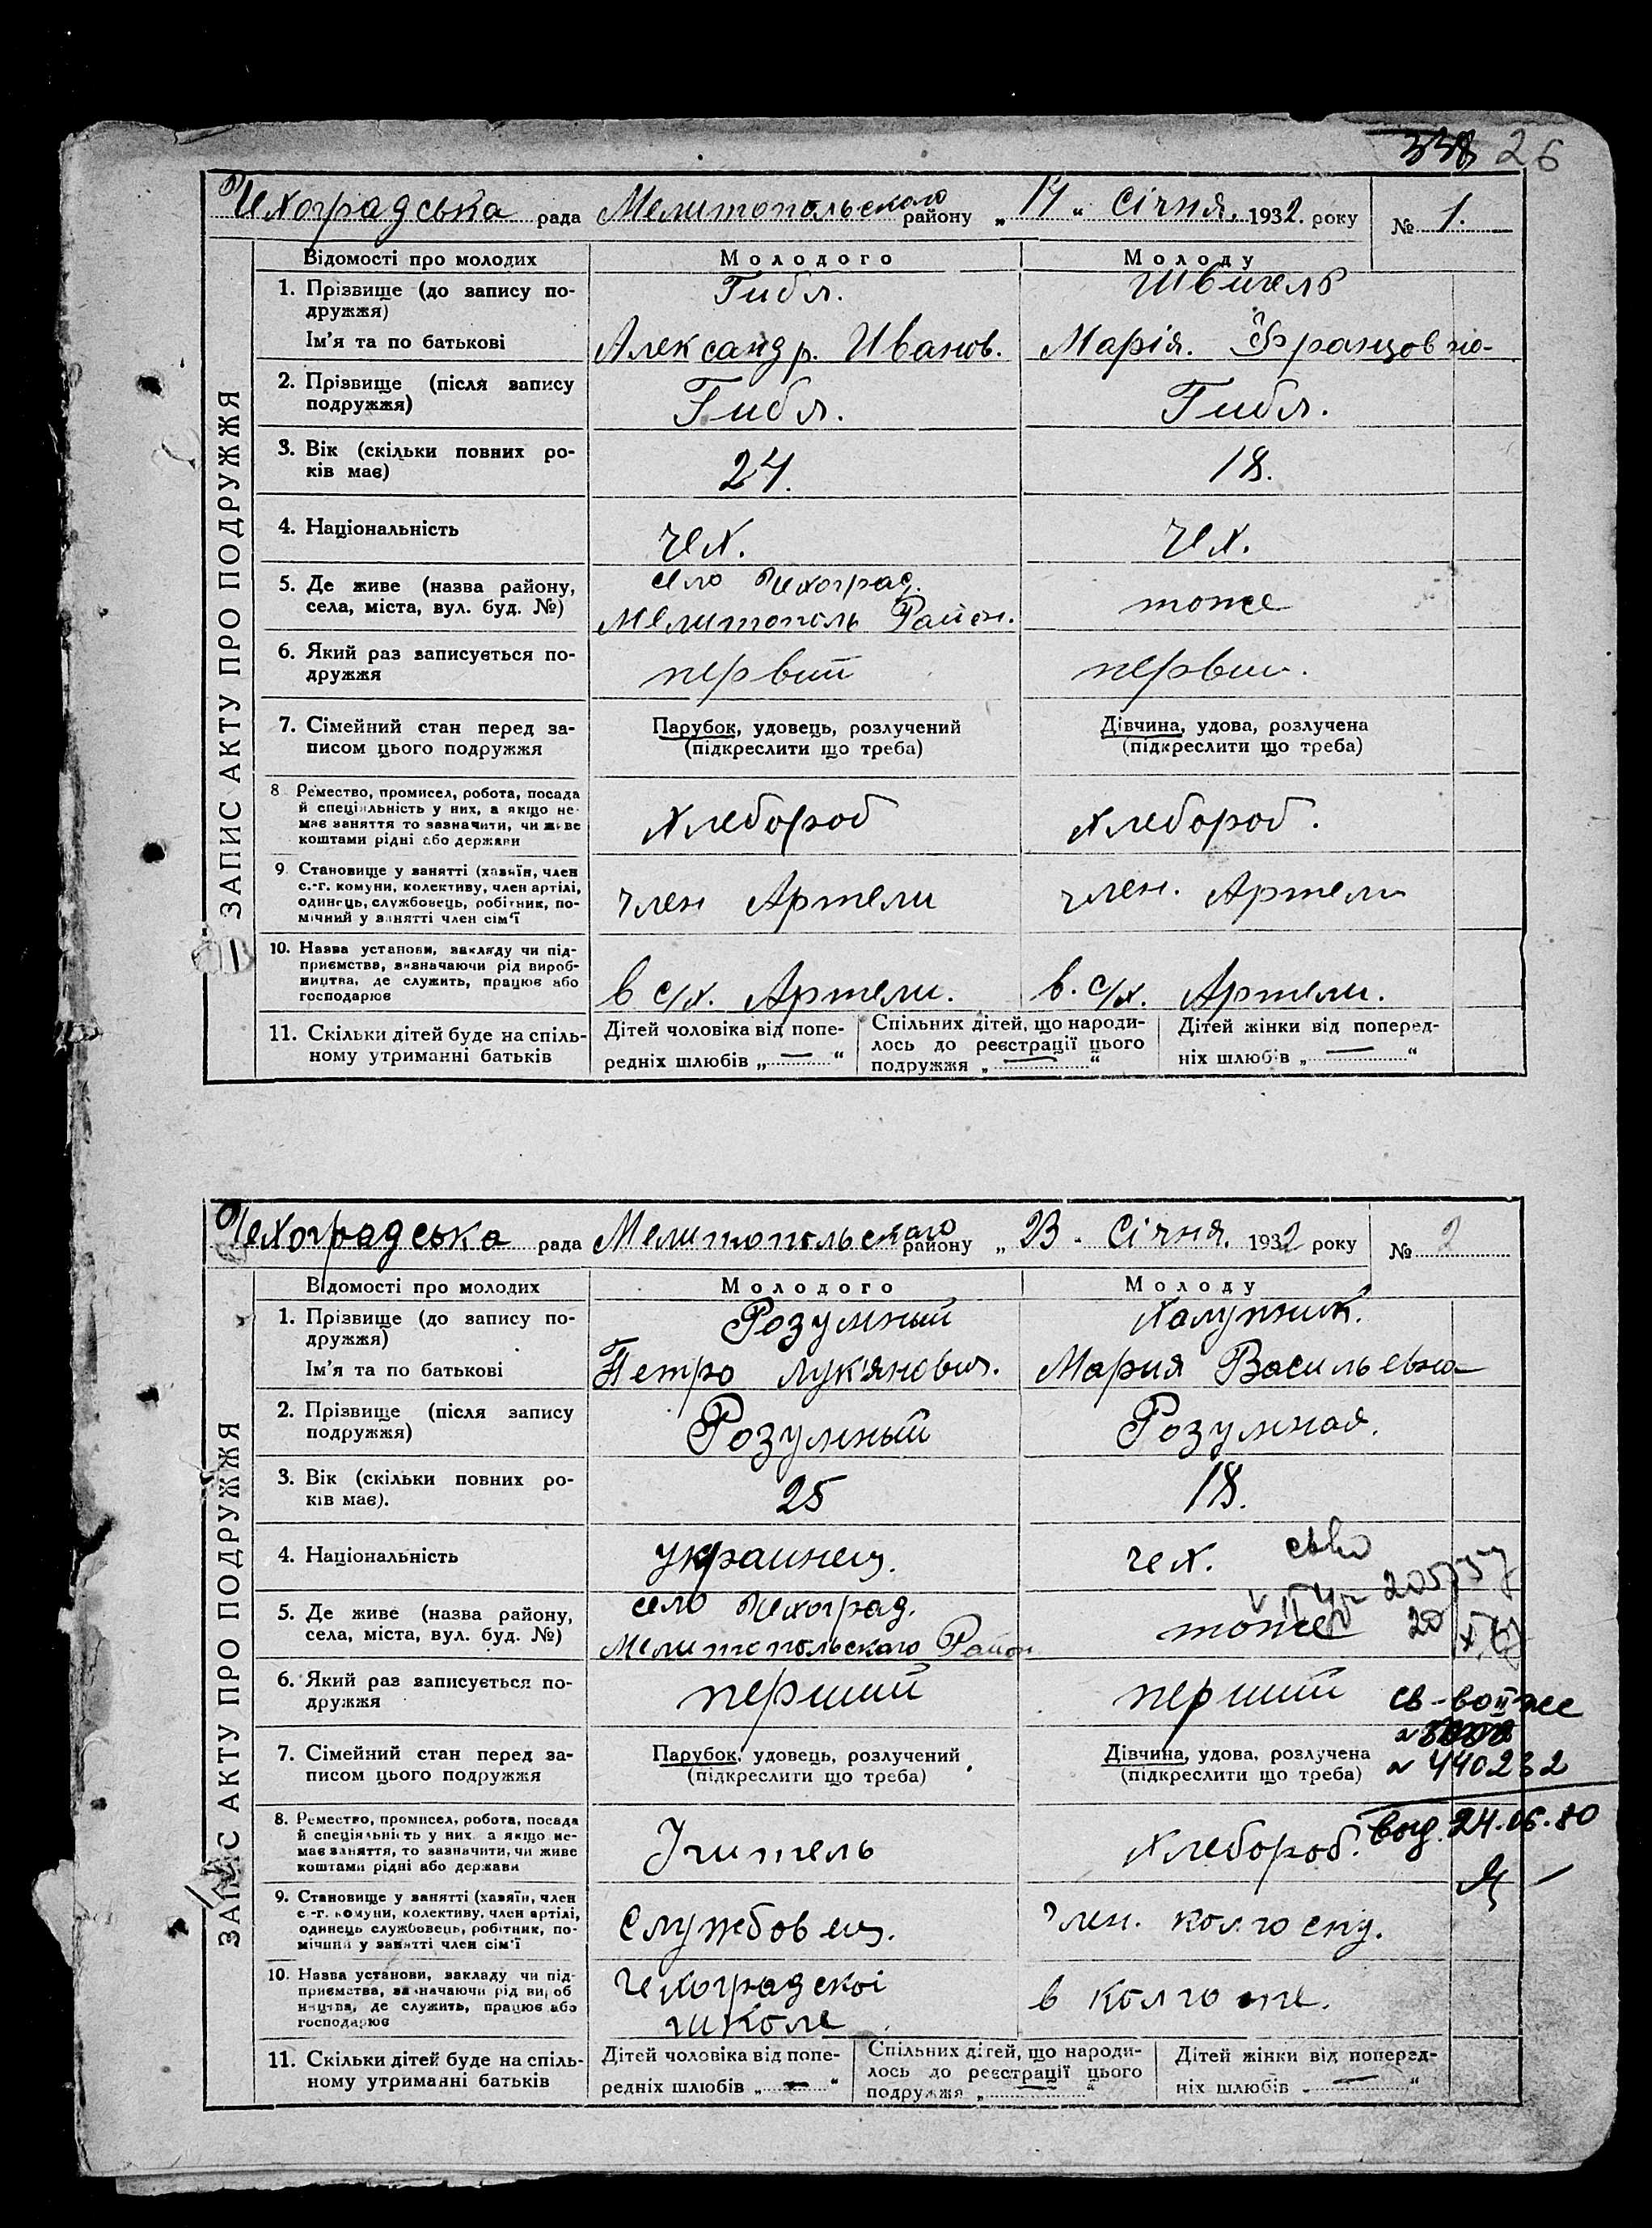 338 26
Чехоградська рада Мелитопольского району „14“ Січня. 1932. року № 1.
ЗАПИС АКТУ ПРО ПОДРУЖЖЯ
Відомості про молодих Молодого Молоду
1. Прізвище (до запису по- Гибл. Швигель
дружжя)
Ім'я та по батькові Александр. Иванов. Марія. Францовно-
2. Прізвище (після запису Гибл. Гибл.
подружжя)
3. Вік (скільки повних ро- 24. 18.
ків має)
4. Національність чех. чех.
5. Де живе (назва району, село Чехоград.
села, міста, вул. буд. №) Мелитополь Район. тоже
6. Який раз записується по- первий первий.
дружжя
7. Сімейний стан перед за- Парубок, удовець, розлучений Дівчина, удова, розлучена
писом цього подружжя (підкреслити що треба) (підкреслити що треба)
8 Ремество, промисел, робота, посада
й спеціяльність у них, а якщо не- Хлебороб Хлебороб.
має заняття то зазначити, чи живе
коштами рідні або держави
9. Становище у занятті (хазяїн, член
с.-г. комуни, колективу, член артілі, член Артели член. Артели
одинець, службовець, робітник, по-
мічний у занятті член сім'ї
10. Назва установи, закладу чи під-
приємства, визначаючи рід вироб-
ництва, де служить, працює або в с/х. Артели. в. с/х. Артели.
господарює
11. Скільки дітей буде на спіль- Дітей чоловіка від попе- Спільних дітей, що народи- Дітей жінки від поперед-
ному утриманні батьків редніх шлюбів „—“ лось до реєстрації цього ніх шлюбів „—“
подружжя „—“
Чехоградська рада Мелитопольского району „23. Січня. 1932 року № 2
ЗАПИС АКТУ ПРО ПОДРУЖЖЯ
Відомості про молодих Молодого Молоду
1. Прізвище (до запису по- Розумный Халупник.
дружжя)
Ім'я та по батькові Петро Лук'янович. Мария Васильевна
2. Прізвище (після запису Розумный Розумная.
подружжя)
3. Вік (скільки повних ро- 25 18.
ків має).
4. Національність украинец. чех.
5. Де живе (назва району, село Чехоград.
села, міста, вул. буд. №) Мелитопольского Район тоже 20
6. Який раз записується по- перший перший св-во
дружжя
7. Сімейний стан перед за- Парубок, удовець, розлучений Дівчина, удова, розлучена
писом цього подружжя (підкреслити що треба) (підкреслити що треба) № 440232
8. Ремество, промисел, робота, посада выд. 24.06.80
й спеціяльність у них, а якщо не- Учитель Хлебороб.
має заняття, то зазначити, чи живе
коштами рідні або держави
9. Становище у занятті (хазяїн, член
с.-г. комуни, колективу, член артілі, Службовец. член. колгоспу.
одинець службовець, робітник, по-
мічний у занятті член сім'ї
10. Назва установи, закладу чи під- Чехоградскоі
приємства, зазначаючи рід вироб- в колгозпе.
ництва, де служить, працює або школе
господарює
11. Скільки дітей буде на спіль- Дітей чоловіка від попе- Спільних дітей, що народи- Дітей жінки від поперед-
ному утриманні батьків редніх шлюбів „—“ лось до реєстрації цього ніх шлюбів „—“
подружжя „—“